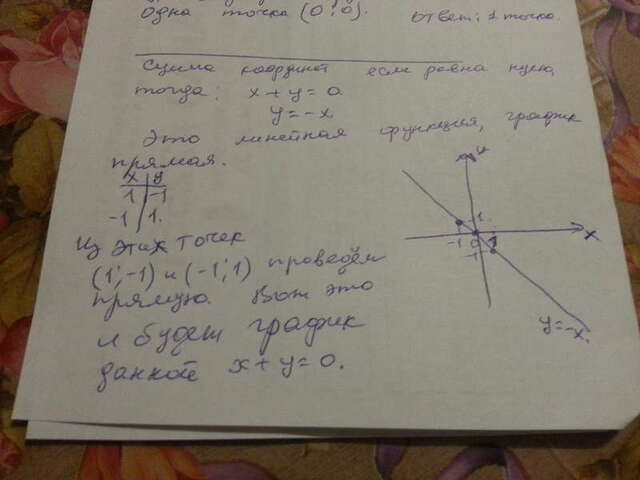 Одна точка (0; 0). Ответ: 1 точка.
Сумма координат если равна нулю,
тогда: x + y = 0
y = -x.
Это линейная функция, график
прямая.
x | y
1 | -1
-1 | 1.
Из этих точек
(1; -1) и (-1; 1) проведём
прямую. Вот это
и будет график
данной x + y = 0.
y
1.
-1 0 1 x
-1
y = -x.